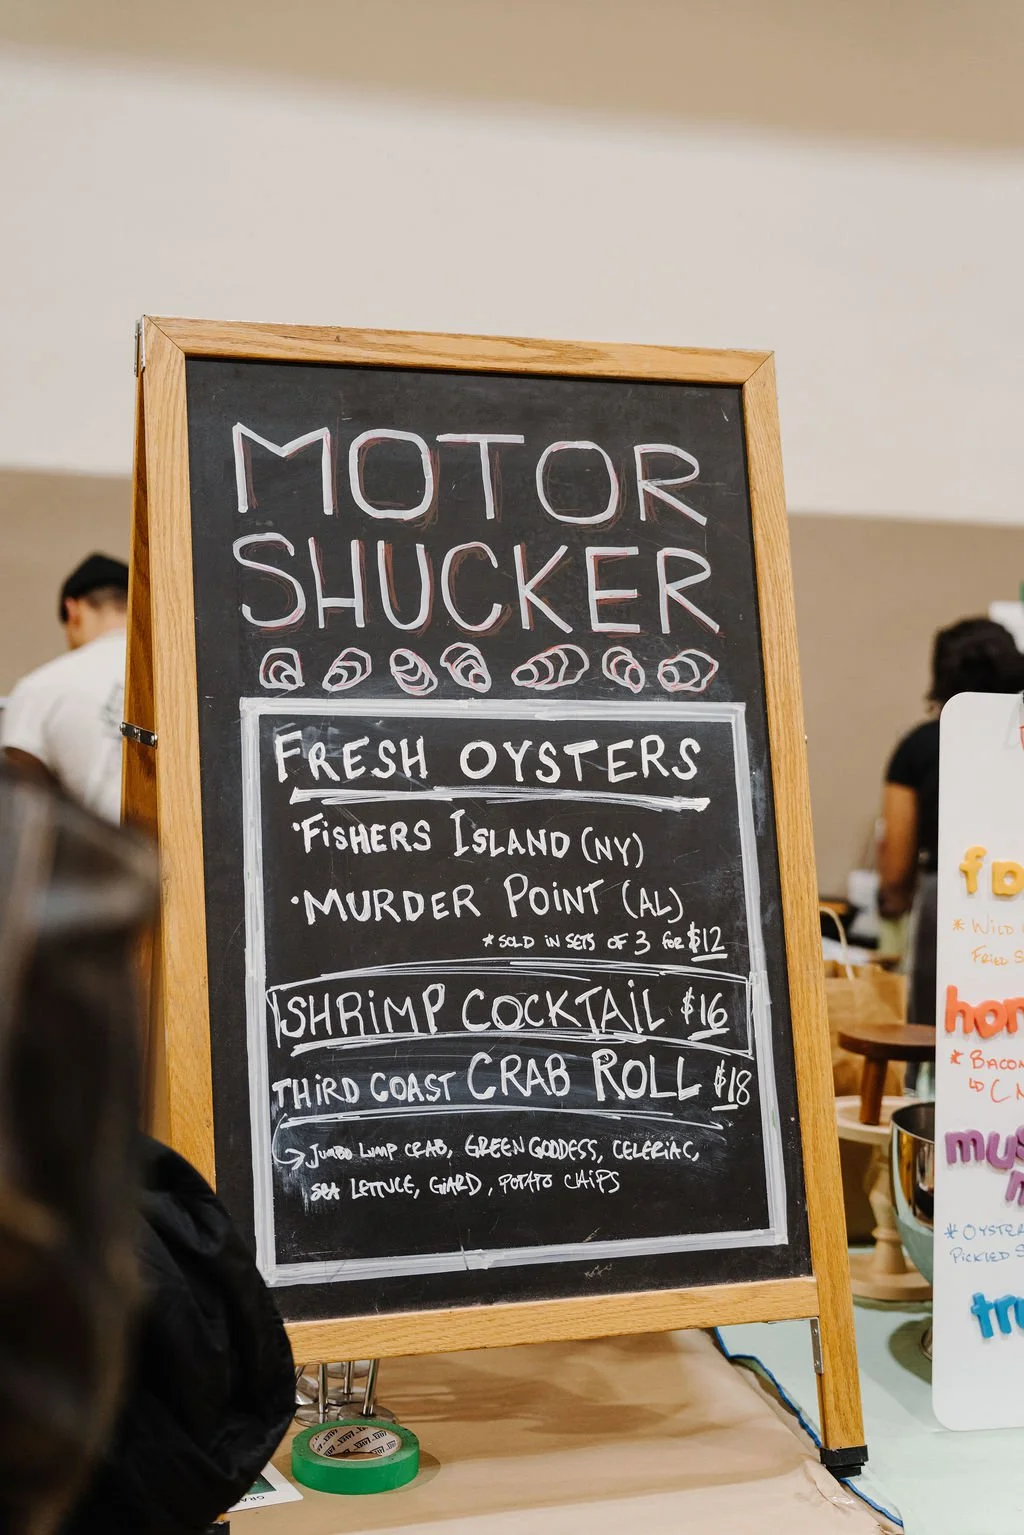 MOTOR
SHUCKER
FRESH OYSTERS
·FiSHERS ISLAND (NY)
·MURDER POiNT (AL)
* SOLD IN SETS OF 3 FOR $12
SHRiMP COCKTAiL $16
THiRD COAST CRAB ROLL $18
JUMBO LUMP CRAB, GREEN GODDESS, CELERiAC,
SEA LETTUCE, GiARD, POTATO CHiPS
* WILD
FRIED S
hon
* BACON
mus
* OYSTER
PICKLED S
tru